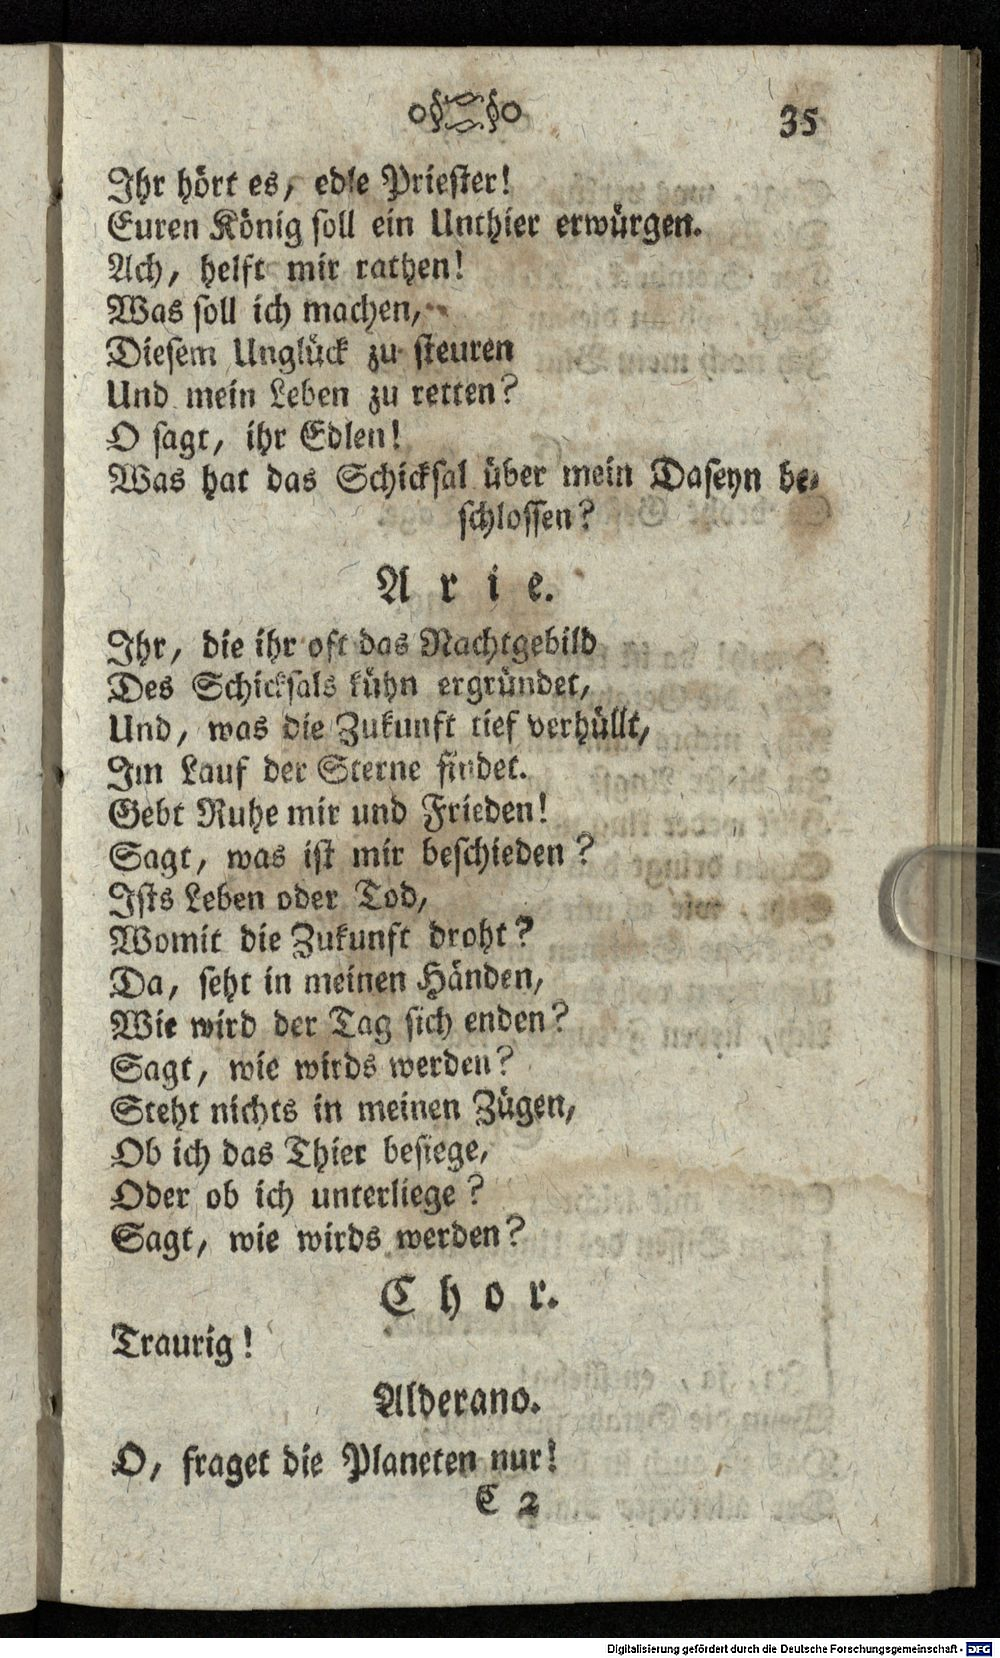 35
Ihr hört es, edle Priester!
Euren König soll ein Unthier erwürgen.
Ach, helft mir rathen!
Was soll ich machen,
Diesem Unglück zu steuren
Und mein Leben zu retten?
O sagt, ihr Edlen!
Was hat das Schicksal über mein Daseyn be-
schlossen?
Arie.
Ihr, die ihr oft das Nachtgebild
Des Schicksals kühn ergründet,
Und, was die Zukunft tief verhüllt,
Im Lauf der Sterne findet.
Gebt Ruhe mir und Frieden!
Sagt, was ist mir beschieden?
Ists Leben oder Tod,
Womit die Zukunft droht?
Da, seht in meinen Händen,
Wie wird der Tag sich enden?
Sagt, wie wirds werden?
Steht nichts in meinen Zügen,
Ob ich das Thier besiege,
Oder ob ich unterliege?
Sagt, wie wirds werden?
Chor.
Traurig!
Alderano.
O, fraget die Planeten nur!
C 2
Digitalisierung gefördert durch die Deutsche Forschungsgemeinschaft - DFG